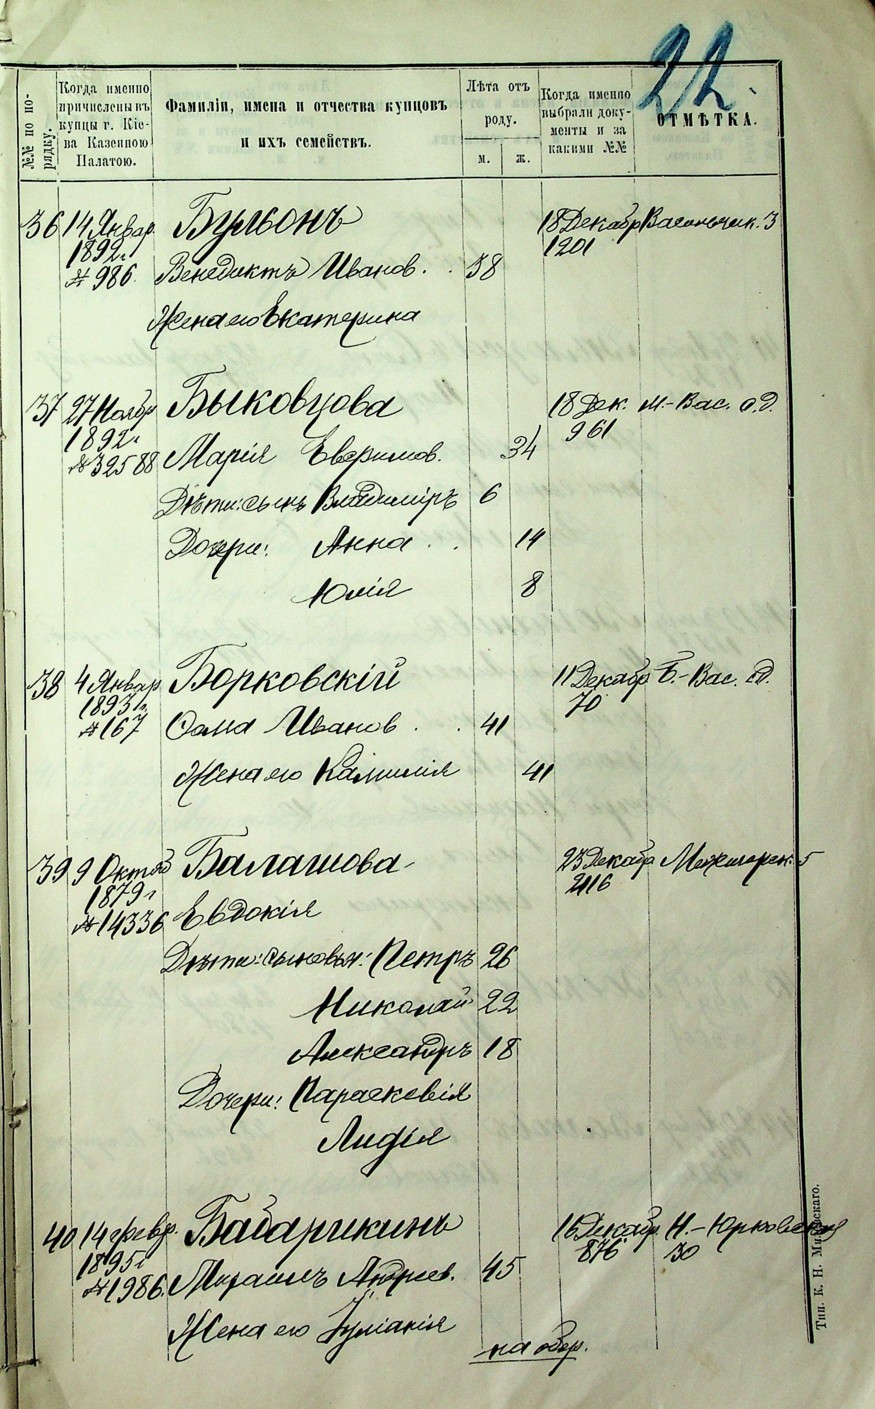 22.
№№ по по-
рядку.
Когда именно
причислены въ
купцы г. Кіе-
ва Казенною
Палатою.
Фамиліи, имена и отчества купцовъ
и ихъ семействъ.
Лѣта отъ
роду.
м. ж.
Когда именно
выбрали доку-
менты и за
какими №№
ОТМѢТКА.
36 14 Январ Бульонъ 18 Декабр Васильчик. 3
1892 г. 1201
№ 986 Венедиктъ Иванов. 38
Жена его Екатерина
37 27 Ноябр Быковцова 18 Дек. М.-Вас. с.д.
1892 г. 961
№ 32588 Марія 34
Дѣти: сынъ Владиміръ 6
Дочери: Анна 14
Юлія 8
38 4 Январ Борковскій 11 Декабр Б.-Вас. с.д.
1893 г. 70
№ 167 Ѳома Иванов 41
Жена его Камилія 41
39 9 Октяб Балашова 23 Декабр Межигорск. 5
1879 г. 2116
№ 14336 Евдокія
Дѣти: сыновья: Петръ 26
Николай 22
Александръ 18
Дочери: Параскевія
Лидія
40 14 Февр. Бабарикинъ 16 Декабр. Н.-Юрковская
1895 г. 876 30
№ 1986. Михаилъ Андреев. 45
Жена его Іуліанія
на обор.
Тип. К. Н. Милевскаго.